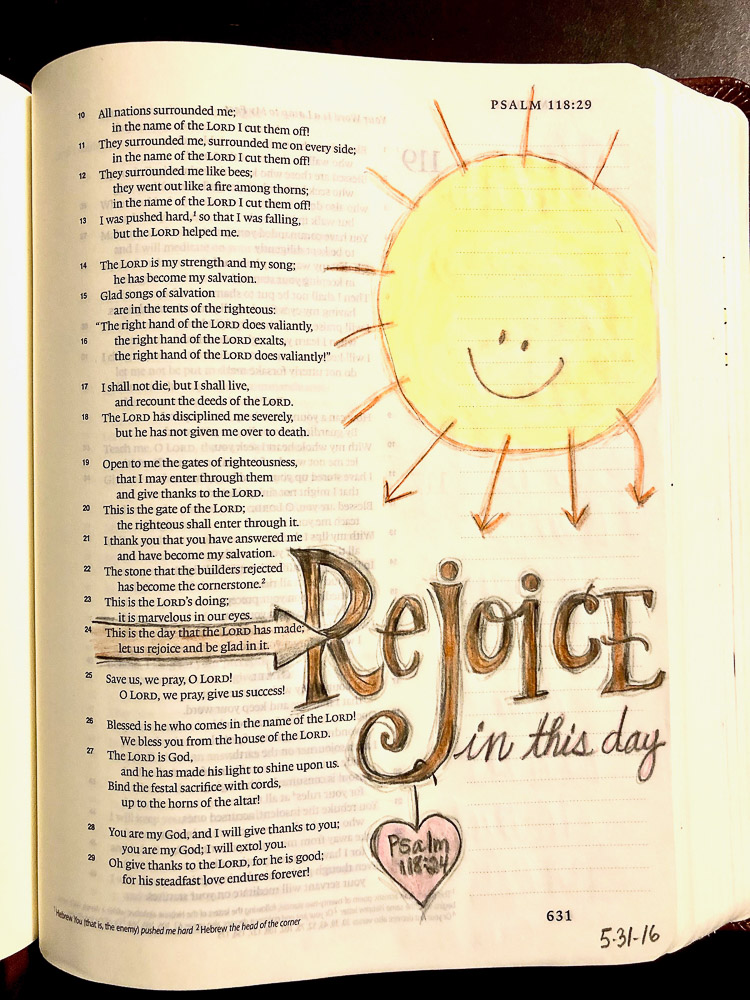 PSALM 118:29
10 All nations surrounded me;
in the name of the LORD I cut them off!
11 They surrounded me, surrounded me on every side;
in the name of the LORD I cut them off!
12 They surrounded me like bees;
they went out like a fire among thorns;
in the name of the LORD I cut them off!
13 I was pushed hard,1 so that I was falling,
but the LORD helped me.
14 The LORD is my strength and my song;
he has become my salvation.
15 Glad songs of salvation
are in the tents of the righteous:
“The right hand of the LORD does valiantly,
16 the right hand of the LORD exalts,
the right hand of the LORD does valiantly!”
17 I shall not die, but I shall live,
and recount the deeds of the LORD.
18 The LORD has disciplined me severely,
but he has not given me over to death.
19 Open to me the gates of righteousness,
that I may enter through them
and give thanks to the LORD.
20 This is the gate of the LORD;
the righteous shall enter through it.
21 I thank you that you have answered me
and have become my salvation.
22 The stone that the builders rejected
has become the cornerstone.2
23 This is the LORD’s doing;
it is marvelous in our eyes.
24 This is the day that the LORD has made;
let us rejoice and be glad in it.
25 Save us, we pray, O LORD!
O LORD, we pray, give us success!
26 Blessed is he who comes in the name of the LORD!
We bless you from the house of the LORD.
27 The LORD is God,
and he has made his light to shine upon us.
Bind the festal sacrifice with cords,
up to the horns of the altar!
28 You are my God, and I will give thanks to you;
you are my God; I will extol you.
29 Oh give thanks to the LORD, for he is good;
for his steadfast love endures forever!
1 Hebrew You (that is, the enemy) pushed me hard 2 Hebrew the head of the corner
RejoicE
in this day
Psalm
118:24
631
5-31-16